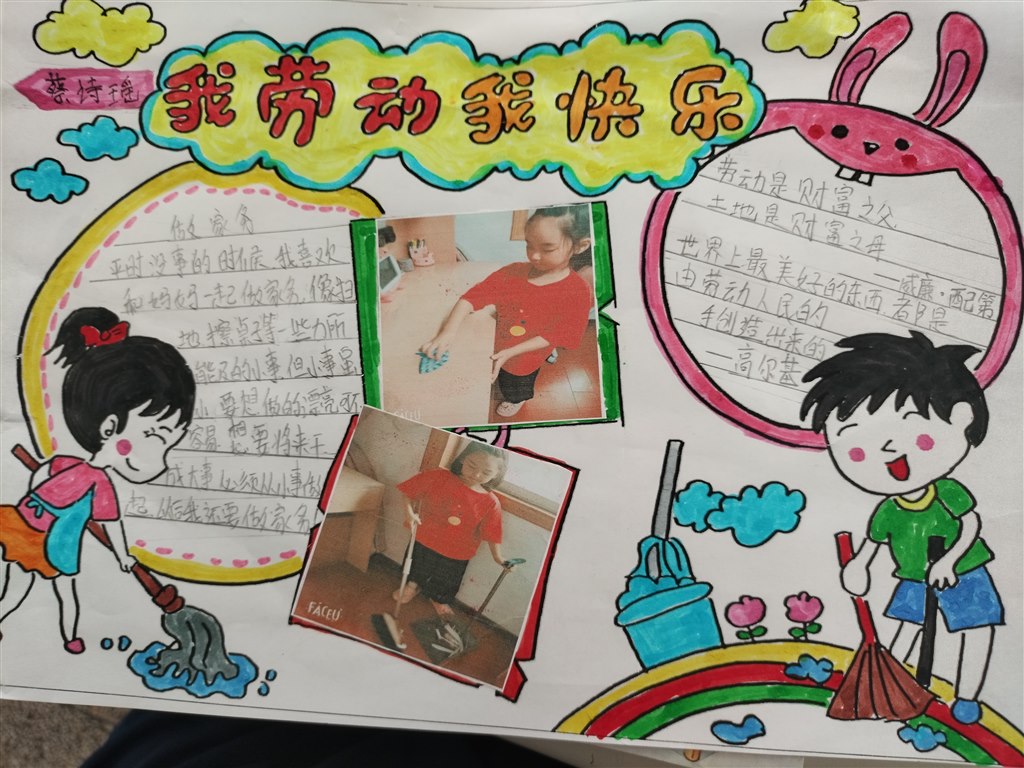 蔡诗瑶
我劳动我快乐
做家务
平时没事的时候我喜欢
和妈妈一起做家务,像扫
地擦桌子等一些力所
能及的小事,但小事虽
小,要想做的漂亮
容易,想要将来干
成大事必须从小事做
起,以后我还要做家务
劳动是财富之父
土地是财富之母
——威廉·配第
世界上最美好的东西,都是
由劳动人民的
手创造出来的
——高尔基
FACEU
FACEU